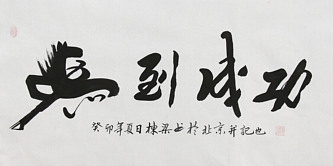 馬到成功
癸卯年夏日棟梁書於北京并記也